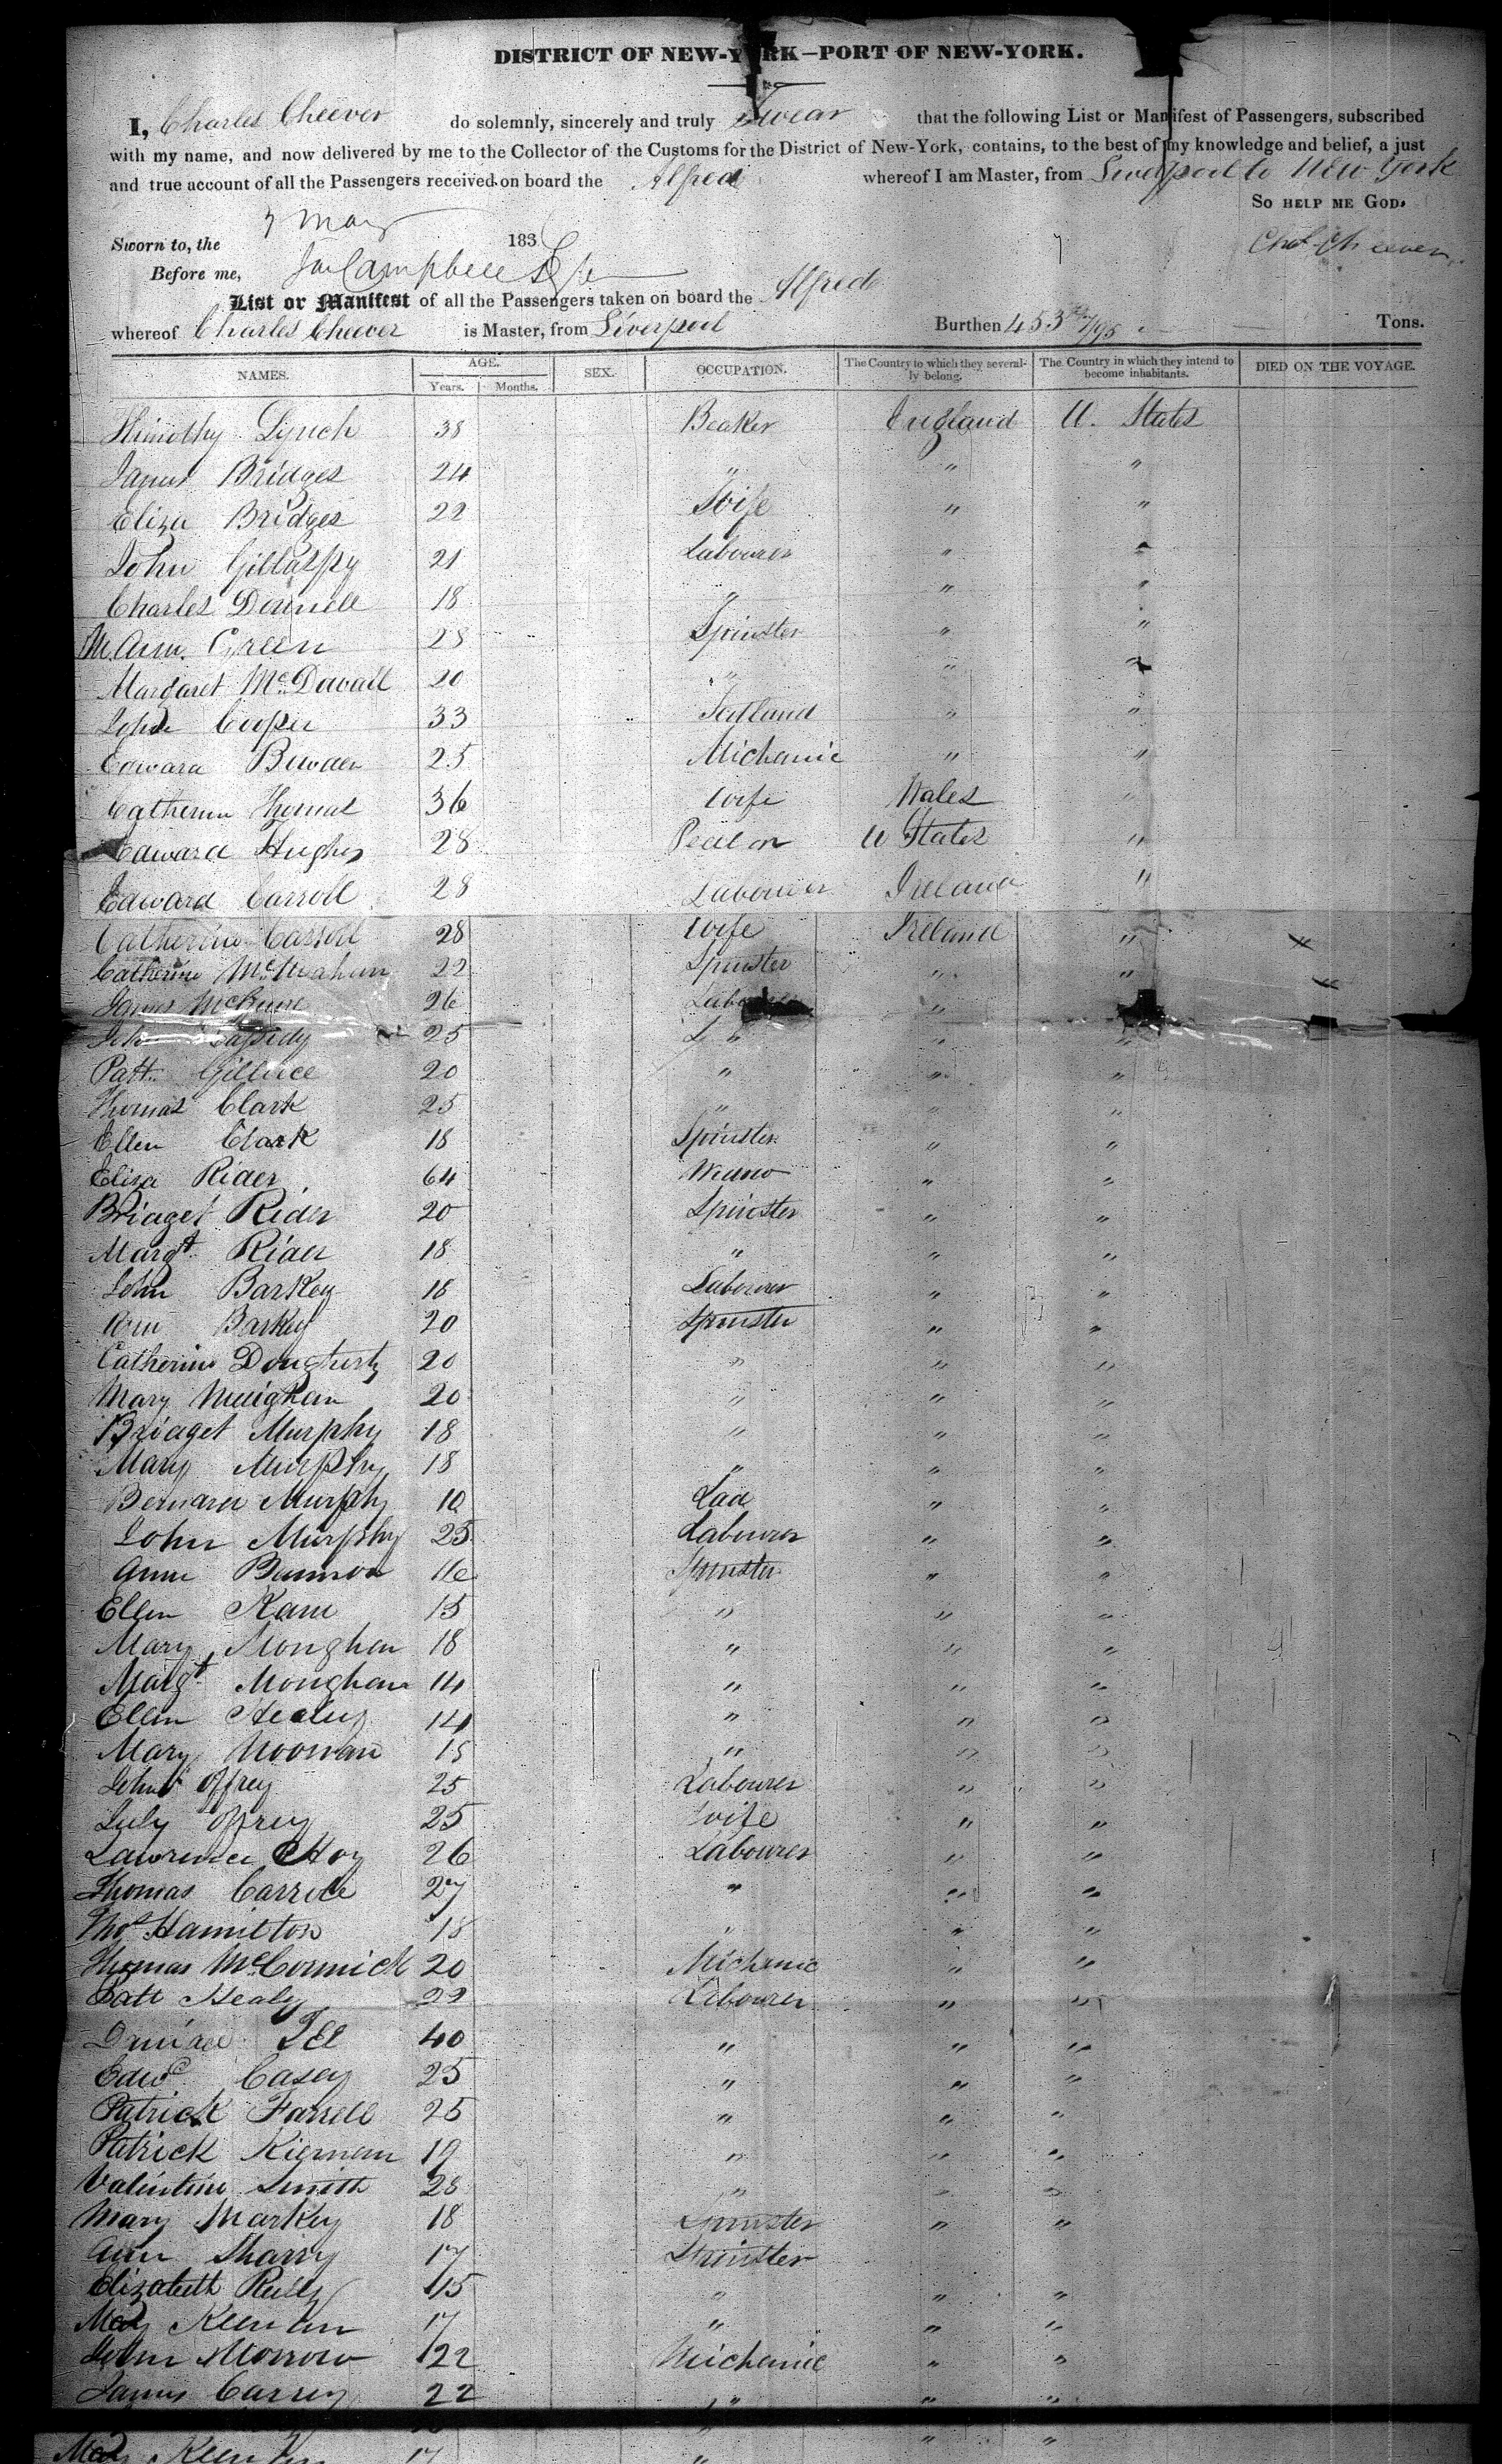 DISTRICT OF NEW-YORK—PORT OF NEW-YORK.
I, Charles Cheever do solemnly, sincerely and truly Swear that the following List or Manifest of Passengers, subscribed
with my name, and now delivered by me to the Collector of the Customs for the District of New-York, contains, to the best of my knowledge and belief, a just
and true account of all the Passengers received on board the Alfred whereof I am Master, from Liverpool to New York
SO HELP ME GOD.
Sworn to, the 7 May 183
Chas Cheever
Before me, Campbell
List or Manifest of all the Passengers taken on board the Alfred
whereof Charles Cheever is Master, from Liverpool Burthen 453 /95 Tons.
NAMES. AGE. SEX. OCCUPATION. The Country to which they severally belong. The Country in which they intend to become inhabitants. DIED ON THE VOYAGE.
Years. Months.
Thimothy Lynch 38 Beaker England U. States
James Bridges 24 " " "
Eliza Bridges 22 Wife " "
John Gillaspy 21 Labourer " "
Charles Donnell 18 " " "
M. Ann. Green 28 Spinster " "
Margaret McDavail 20 " " "
John Cooper 33 " "
Edward Bewden 25 Michanic " "
Catherine Thomas 36 Wife Wales "
Edward Hughes 28 U States "
Edward Carroll 28 Labourer Ireland "
Catherine Carroll 28 Wife Ireland "
Catherine McMahan 22 Spinster " "
James 26 Labourer " "
John Cassidy 25 L " " "
Patt. 20 " " "
Thomas Clark 25 " " "
Ellen Clark 18 Spinster " "
Eliza Rider 64 Widno " "
Bridget Rider 20 Spinster " "
Margt Rider 18 " " "
John Barkey 18 Labourer " "
Ann Barkey 20 Spinster " "
Catherine Dougherty 20 " " "
Mary 20 " " "
Bridget Murphy 18 " " "
Mary Murphy 18 " " "
Bernard Murphy 10 Lad " "
John Murphy 25 Labourer " "
Anne Bannon 16 Spinster " "
Ellen Kane 15 " " "
Mary Monghan 18 " " "
Margt Monghan 14 " " "
Ellen Healey 14 " " "
Mary Noowan 15 " " "
John Offrey 25 Labourer " "
July Offrey 25 Wife " "
Lawrence Hoy 26 Labourer " "
Thomas Carrole 27 " " "
Thos Hamilton 18 " " "
Thomas McCormick 20 Michanic " "
Patt Healy 22 Labourer " "
40 " " "
Edwd Casey 25 " " "
Patrick Farrell 25 " " "
Patrick Kiernan 19 " " "
Valentine Smith 28 " " "
Mary Markey 18 Spinster " "
Ann Sharry 17 Spinster
Elizabeth Reilly 15 " " "
Mary Keenan 17 " " "
John Morrow 22 Michanic " "
James Carrey 22 " " "